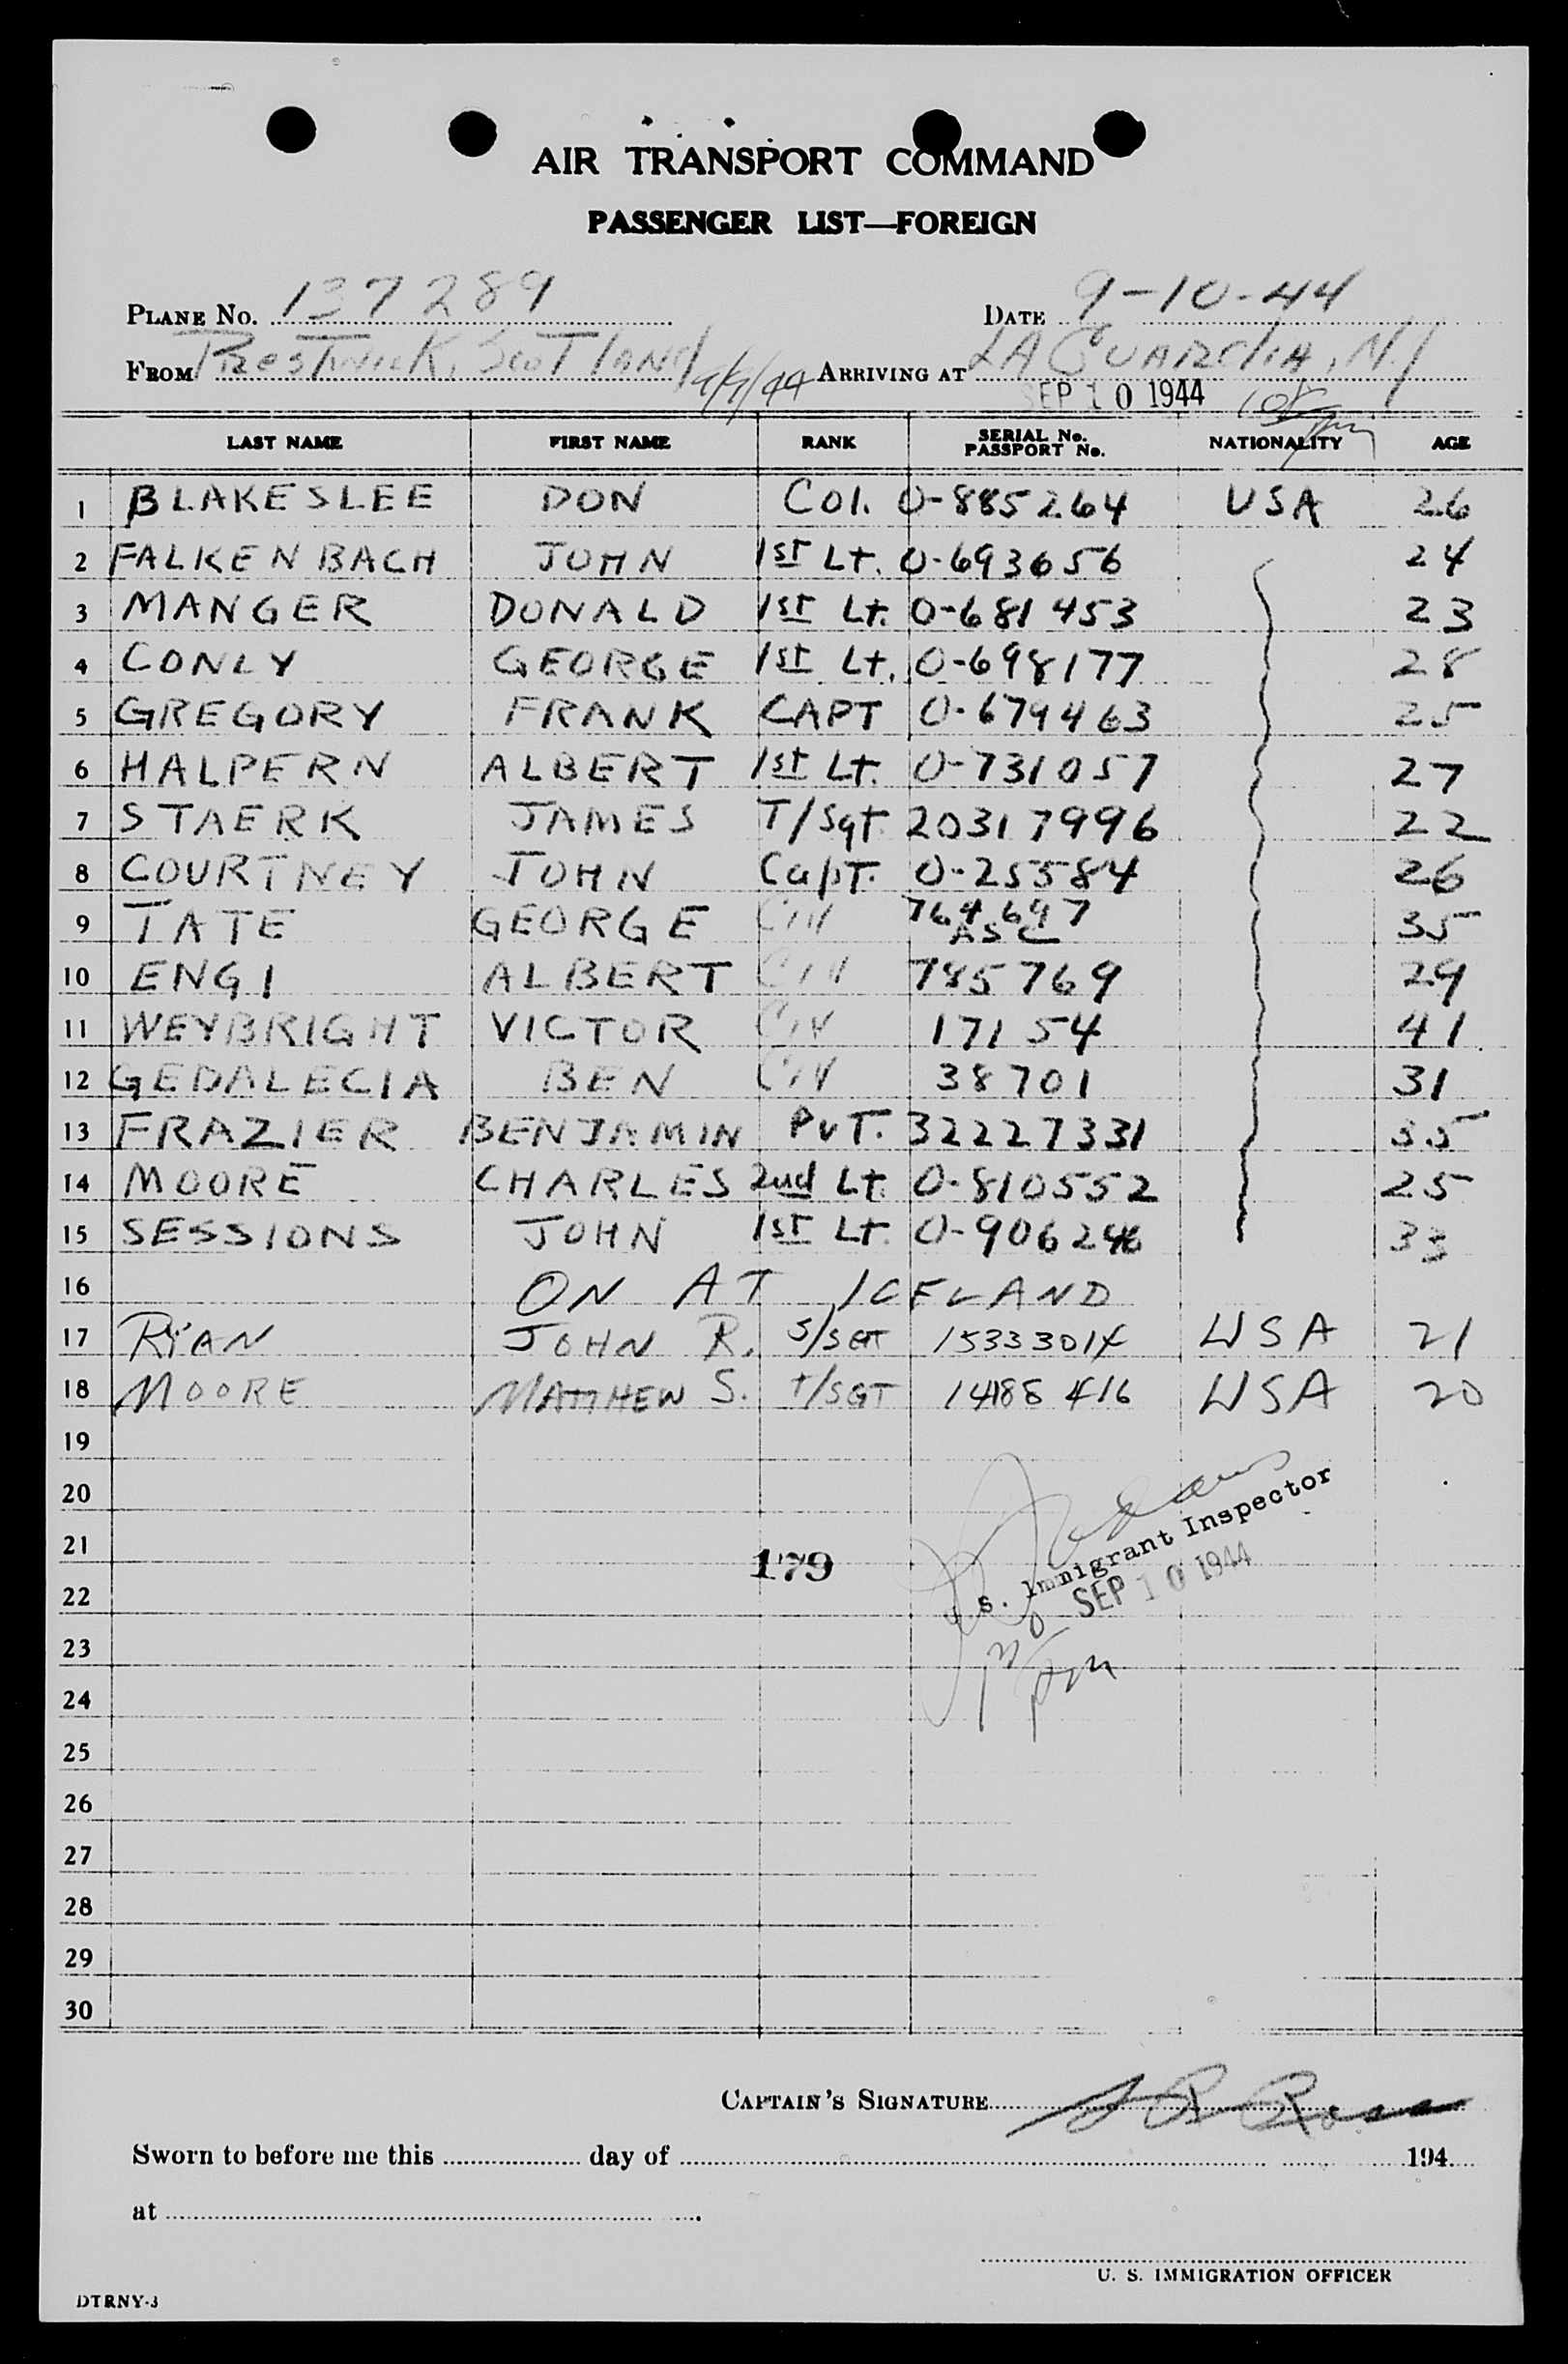 AIR TRANSPORT COMMAND
PASSENGER LIST—FOREIGN
PLANE No. 137289 DATE 9-10-44
FROM Prestwick, Scotland 9/9/44 ARRIVING AT LA GUARdiA, N.Y
SEP 10 1944
LAST NAME FIRST NAME RANK SERIAL No. PASSPORT No. NATIONALITY AGE
1 BLAKESLEE DON Col. O-885264 USA 26
2 FALKENBACH JOHN 1st Lt. O-693656 24
3 MANGER DONALD 1st Lt. O-681453 23
4 CONLY GEORGE 1st Lt. O-698177 28
5 GREGORY FRANK CAPT O-679463 25
6 HALPERN ALBERT 1st Lt. O-731057 27
7 STAERK JAMES T/Sgt 20317996 22
8 COURTNEY JOHN CapT. O-25584 26
9 TATE GEORGE Civ 764697 ASC 35
10 ENGI ALBERT Civ 785769 29
11 WEYBRIGHT VICTOR Civ 17154 41
12 GEDALECIA BEN Civ 38701 31
13 FRAZIER BENJAMIN PvT. 32227331 35
14 MOORE CHARLES 2nd Lt. O-810552 25
15 SESSIONS JOHN 1st Lt. O-906246 33
16 ON AT ICELAND
17 RYAN JOHN R. S/SGT 15333014 USA 21
18 MOORE MATTHEW S. T/SGT 14188416 USA 20
19
20
21 179
U. S. Immigrant Inspector
22 SEP 10 1944
23 pm
24
25
26
27
28
29
30
CAPTAIN'S SIGNATURE Ross
Sworn to before me this day of 194
at
U. S. IMMIGRATION OFFICER
DTRNY-3